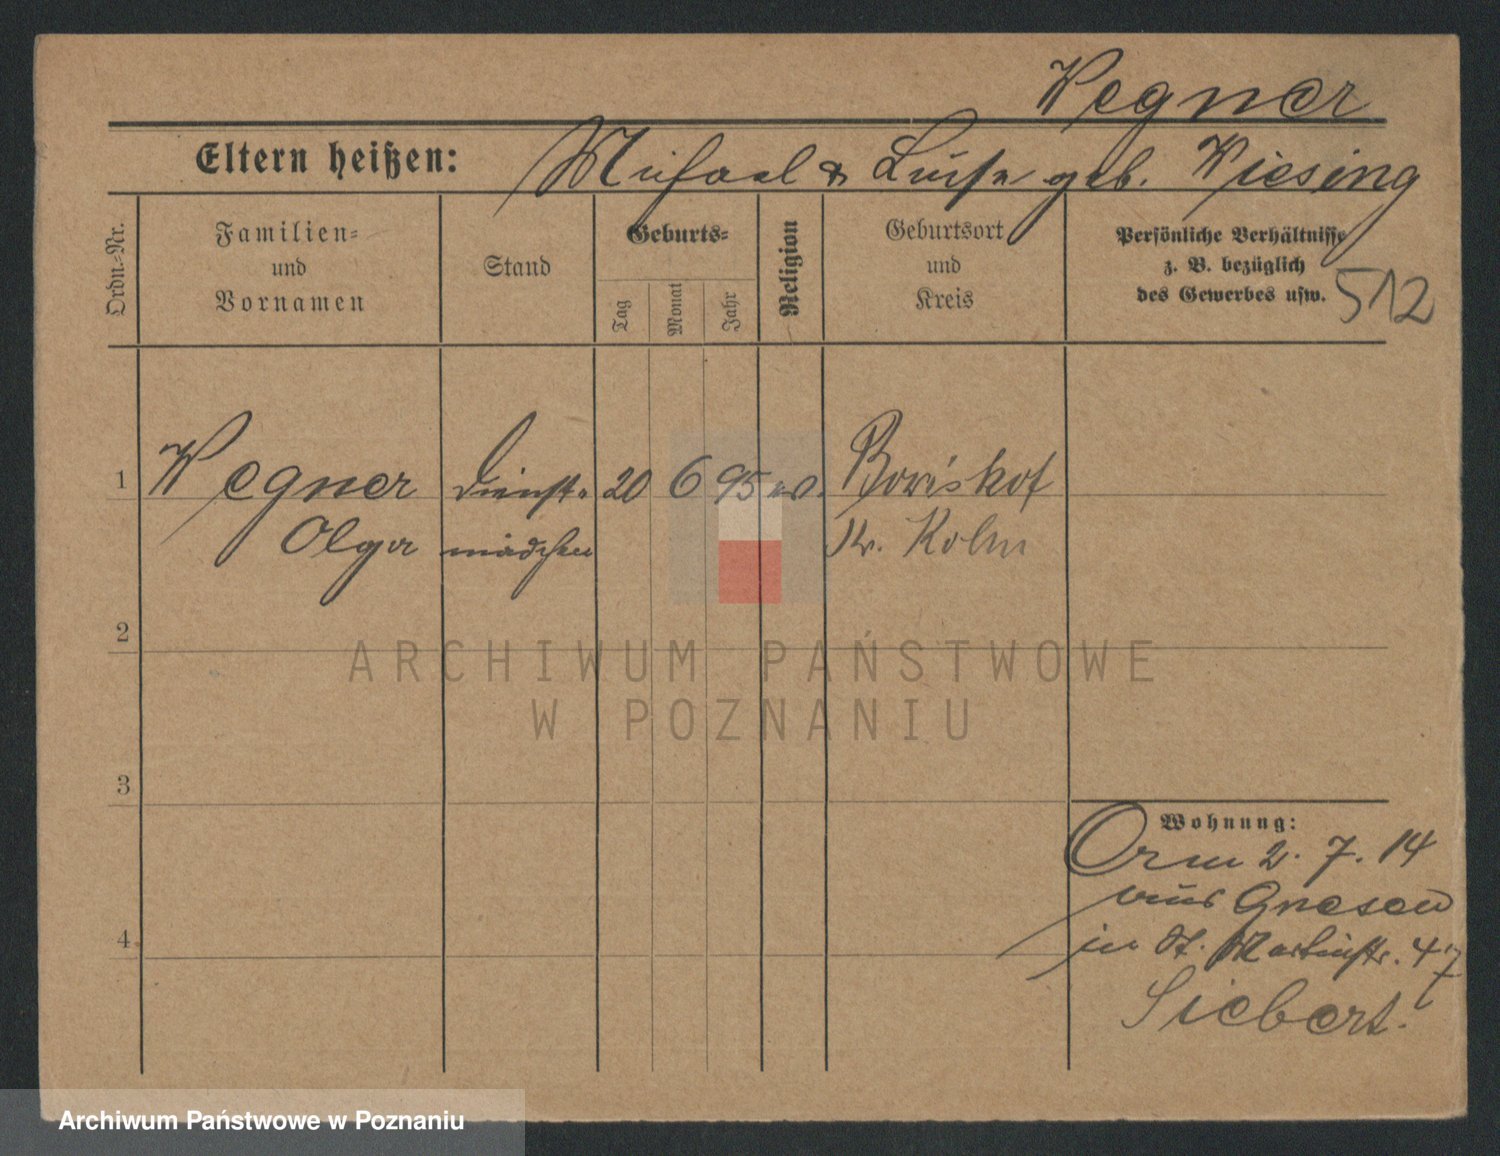 Wegner
Eltern heißen: Michael & Luise geb. Wiesing
Ordn.-Nr.
Familien-
und
Vornamen
Stand
Geburts-
Tag
Monat
Jahr
Religion
Geburtsort
und
Kreis
Persönliche Verhältnisse
z. B. bezüglich
des Gewerbes usw.
512
1 Wegner Dienst- 20 6 95 ev. Boriskof
Olga mädchen Kr. Kolm
2
3
4
Wohnung:
2. 7. 14
aus Gnesen
in St. Martinstr. 47
Siebert.
ARCHIWUM PAŃSTWOWE
W POZNANIU
Archiwum Państwowe w Poznaniu